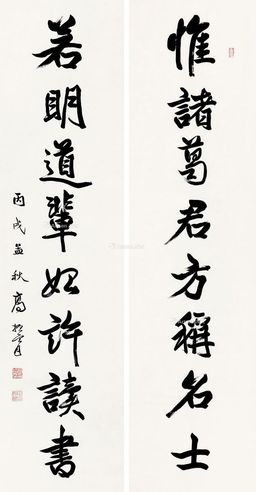 惟諸葛君方稱名士
若明道輩始許讀書
丙戌孟秋高